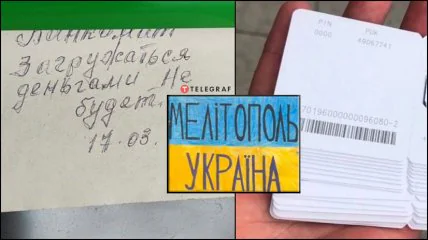 Банкомат
Загружаться
деньгами не
будет.
17.03.
TELEGRAF
МЕЛІТОПОЛЬ
УКРАЇНА
PIN PUK
0000 49067741
70196000000096080-2